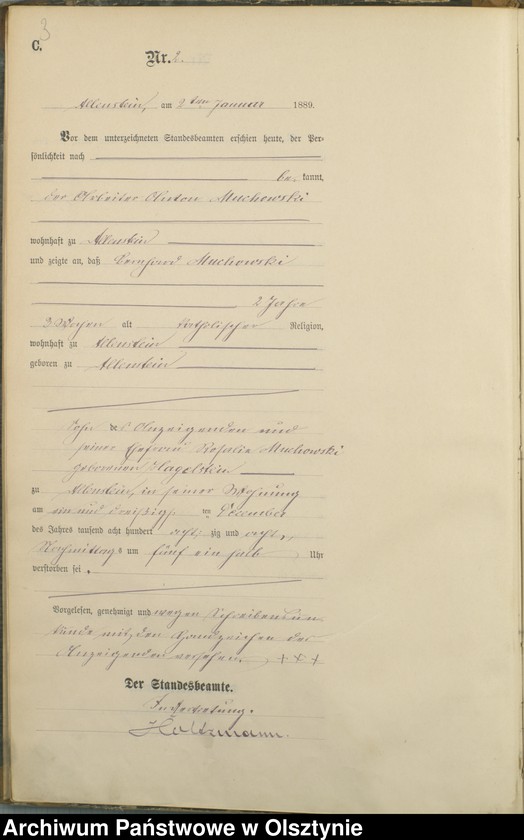 3
C.
Nr. 2.
Allenstein, am 2ten Januar 1889.
Vor dem unterzeichneten Standesbeamten erschien heute, der Per-
sönlichkeit nach
be kannt,
der Arbeiter Anton Muchowski
wohnhaft zu Allenstein
und zeigte an, daß Bernhard Muchowski
2 Jahre
3 Wochen alt katholischer Religion,
wohnhaft zu Allenstein
geboren zu Allenstein
Sohn des Anzeigenden und
seiner Ehefrau Rosalie Muchowski
geborenen Hagelstein
zu Allenstein, in seiner Wohnung
am ein und dreißigsten December
des Jahres tausend acht hundert acht zig und acht,
Nachmittags um fünf ein halb Uhr
verstorben sei.
Vorgelesen, genehmigt und wegen Schreibensun
kunde mit den Handzeichen des
Anzeigenden versehen. + + +
Der Standesbeamte.
In Vertretung.
Archiwum Państwowe w Olsztynie